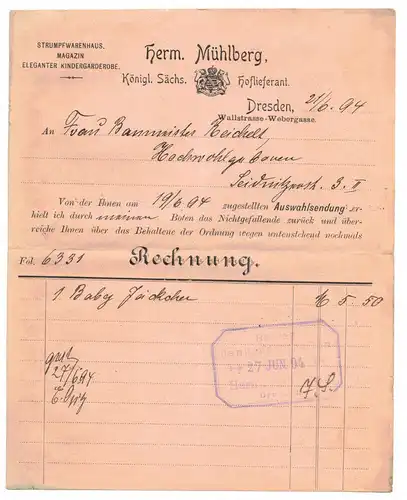 STRUMPFWARENHAUS,
MAGAZIN
ELEGANTER KINDERGARDEROBE.
Herm. Mühlberg,
Königl. Sächs. Hoflieferant.
Dresden, 21/6.94
Wallstrasse-Webergasse.
An Frau Baumeister Reichelt,
Hochwohlgeboren
Seidnitzerstr. 3. II
Von der Ihnen am 19/6 94 zugestellten Auswahlsendung er-
hielt ich durch meinen Boten das Nichtgefallende zurück und über-
reiche Ihnen über das Behaltene der Ordnung wegen untenstehend nochmals
Rechnung.
Fol. 6331
1 Baby Jäckchen M 5.50
27 JUN. 94
27/6 94